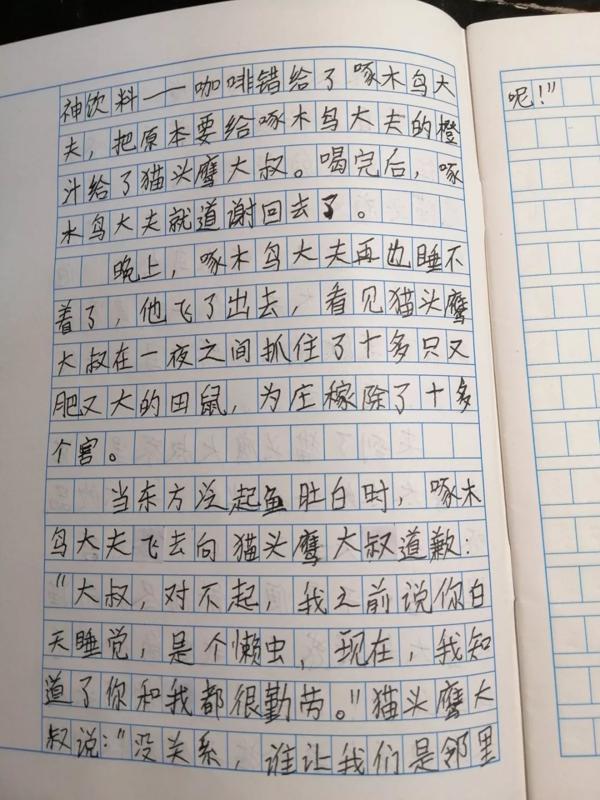 神饮料——咖啡错给了啄木鸟大
夫，把原本要给啄木鸟大夫的橙
汁给了猫头鹰大叔。喝完后，啄
木鸟大夫就道谢回去了。
晚上，啄木鸟大夫再也睡不
着了，他飞了出去，看见猫头鹰
大叔在一夜之间抓住了十多只又
肥又大的田鼠，为庄稼除了十多
个害。
当东方泛起鱼肚白时，啄木
鸟大夫飞去向猫头鹰大叔道歉：
“大叔，对不起，我之前说你白
天睡觉，是个懒虫，现在，我知
道了你和我都很勤劳。”猫头鹰大
叔说：“没关系，谁让我们是邻里
呢！”